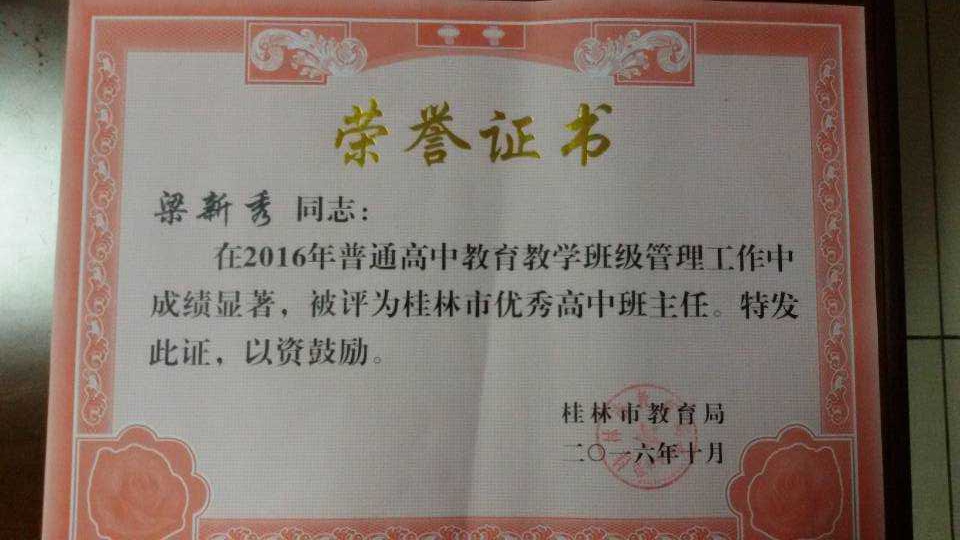 荣誉证书
梁新秀 同志：
在2016年普通高中教育教学班级管理工作中
成绩显著，被评为桂林市优秀高中班主任。特发
此证，以资鼓励。
桂林市教育局
二〇一六年十月